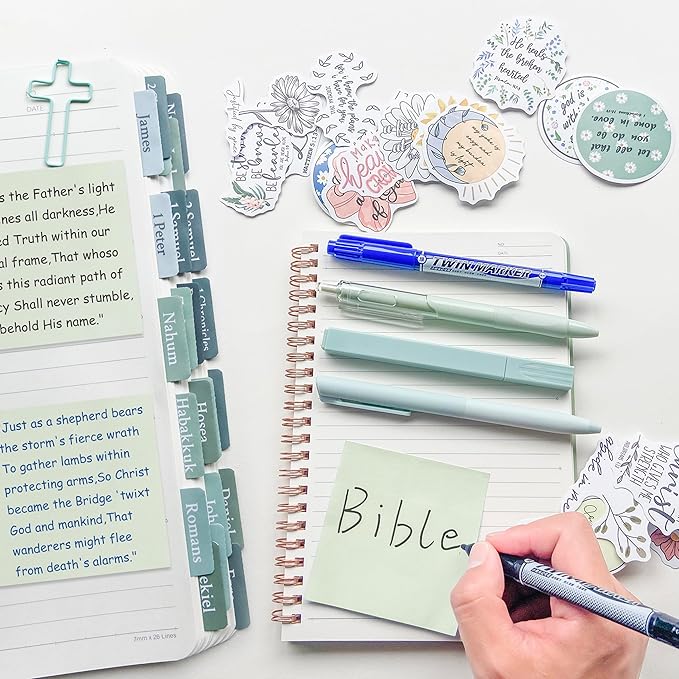 DATE
s the Father's light
nes all darkness,He
ed Truth within our
al frame,That whoso
s this radiant path of
cy Shall never stumble,
behold His name."
Just as a shepherd bears
the storm's fierce wrath
To gather lambs within
protecting arms,So Christ
became the Bridge 'twixt
God and mankind,That
wanderers might flee
from death's alarms."
7mm x 26 Lines
James
1 Peter
1 Samuel
2 Samuel
Nahum
Chronicles
Habakkuk
Hosea
Romans
Daniel
He heals
the broken
hearted
god is
with
let all that
you do be
done in love
Be strong
Be brave
Be fearless
MAKE
heart
of God
NO
TWIN MARKER
Bible
abide in me
christ
GIVES ME
STRENGTH